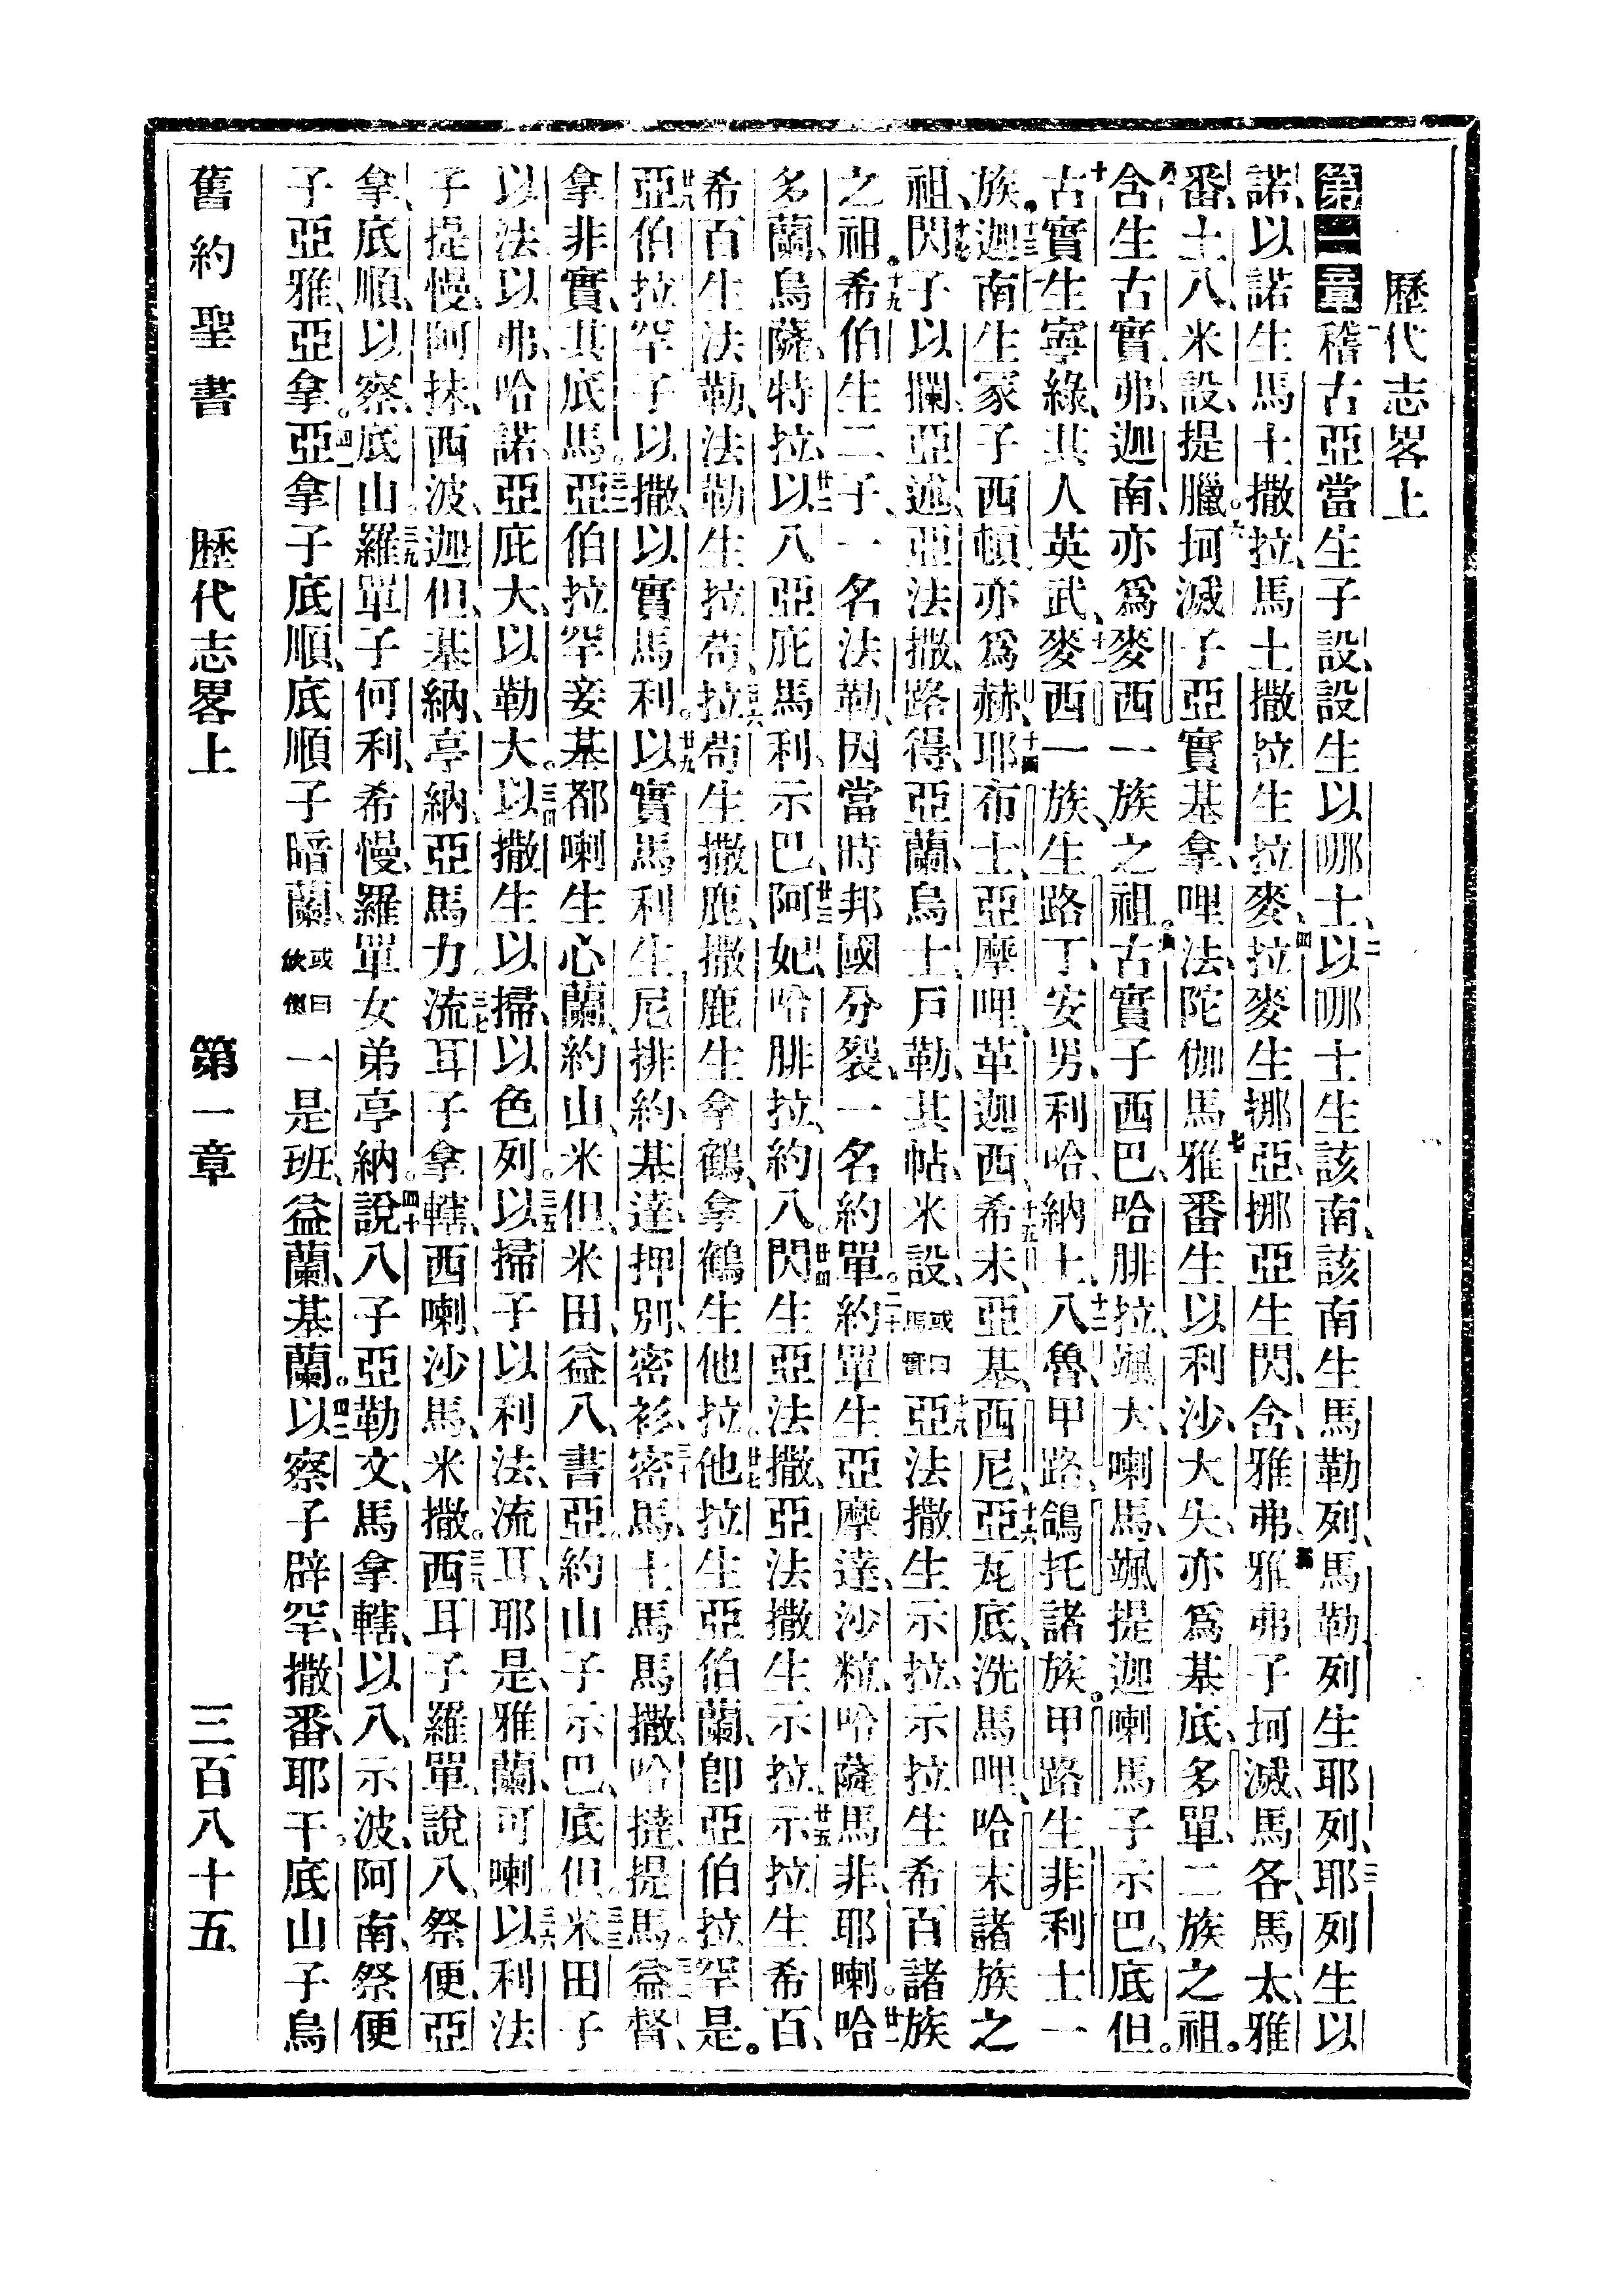 歷代志畧上
第一章稽古亞當生子設、設生以哪士、二以哪士生該南、該南生馬勒列、馬勒列生耶列、三耶列生以
諾、以諾生馬土撒拉、馬土撒拉生拉麥、四拉麥生挪亞、挪亞生閃、含、雅弗、五雅弗子坷滅、馬各、馬太、雅
番、土八、米設、提臘。六坷滅子亞實基拿、哩法、陀伽馬、七雅番生以利沙、大失、亦爲基底、多單、二族之祖。
八含生古實、弗、迦南、亦爲麥西一族之祖。九古實子西巴、哈腓拉、颯大、喇馬、颯提迦、喇馬子示巴、底但。
十古實生寧綠、其人英武、十一麥西一族、生路丁、安男、利哈、納土、十二八魯、甲路、鴿托諸族。甲路生非利士一
族。十三迦南生冢子西頓、亦爲赫、十四耶布士、亞摩哩、革迦西、十五希未、亞基、西尼、十六亞瓦底、洗馬哩、哈末諸族之
祖、十七閃子以攔、亞述、亞法撒、路得、亞蘭、烏士、戶勒、其帖、米設、或曰馬實十八亞法撒生示拉、示拉生希百諸族
之祖。十九希伯生二子、一名法勒、因當時邦國分裂、一名約單。二十約單生亞摩達、沙粒、哈薩馬非、耶喇。廿一哈
多蘭、烏薩、特拉、廿二以八、亞庇馬利、示巴、廿三阿妃、哈腓拉、約八。廿四閃生亞法撒、亞法撒生示拉、廿五示拉生希百、
希百生法勒、法勒生拉苟、廿六拉苟生撒鹿、撒鹿生拿鶴、拿鶴生他拉。廿七他拉生亞伯蘭、卽亞伯拉罕是。
廿八亞伯拉罕子以撒、以實馬利。廿九以實馬利生尼排約、基達、押別、密衫、三十密馬、土馬、馬撒、哈撻、提馬、三一益督、
拿非實、其底馬。三二亞伯拉罕妾基都喇生心蘭、約山、米但、米田、益八、書亞。約山子示巴、底但。三三米田子
以法、以弗、哈諾、亞庇大、以勒大。三四以撒生以掃、以色列。三五以掃子以利法、流耳、耶是、雅蘭、可喇、三六以利法
子提慢、阿抹、西波、迦但、基納、亭納、亞馬力、三七流耳子拿轄、西喇、沙馬、米撒。三八西耳子羅單、說八、祭便、亞
拿、底順、以察、底山。三九羅單子何利、希慢、羅單女弟亭納。四十說八子亞勒文、馬拿轄、以八、示波、阿南、祭便
子亞雅、亞拿。四一亞拿子底順、底順子暗蘭、或曰欣但一是班、益蘭、基蘭。四二以察子辟罕、撒番、耶干。底山子烏
舊約聖書　歷代志畧上　第一章　三百八十五